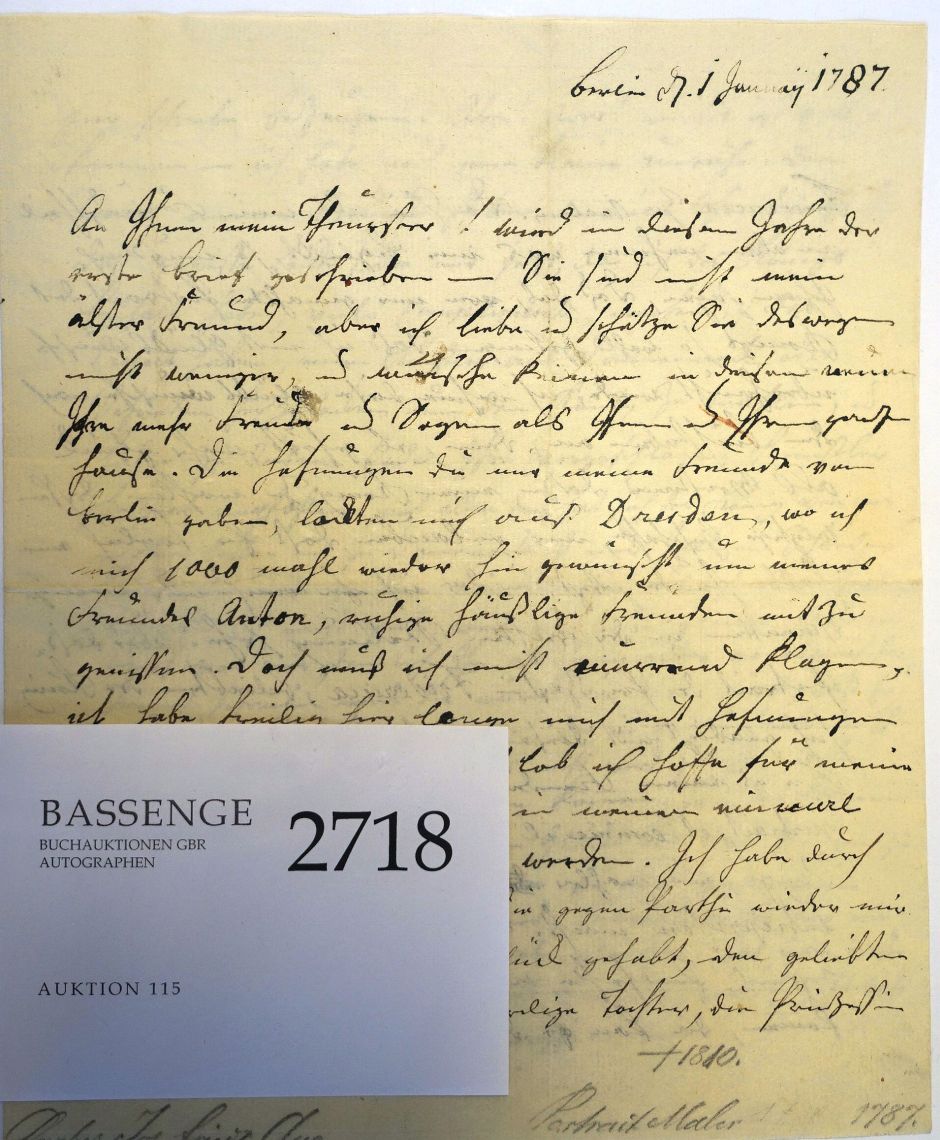 Berlin d. 1 Januarÿ 1787.
An Ihnen mein Theurster! wird in diesem Jahre der
erste brief geschrieben — Sie sind nicht mein
älster Freund, aber ich liebe u schätze Sie deswegen
nicht weniger, u wünsche keinem in diesem neuen
Jahre mehr Freude u Segen als Ihnen u Ihrem ganzen
Hause. Die Hofnungen die mir meine Freunde von
Berlin gaben, lockten mich aus Dresden, wo ich
mich 1000 mahl wieder hin gewünscht um meines
Freundes Anton, ruhige häußlige Freuden mit zu
genissen. Doch muß ich nicht murrend klagen,
ich habe freilig hier lange mich mit Hofnungen
lob ich hoffe für meine
in meinem
werden. Ich habe durch
gegen Parthie wieder mir
gehabt, den geliebten
Tochter, die Prinzessin
†1810.
Portrait Maler 1787.
BASSENGE
BUCHAUKTIONEN GBR
AUTOGRAPHEN
2718
AUKTION 115